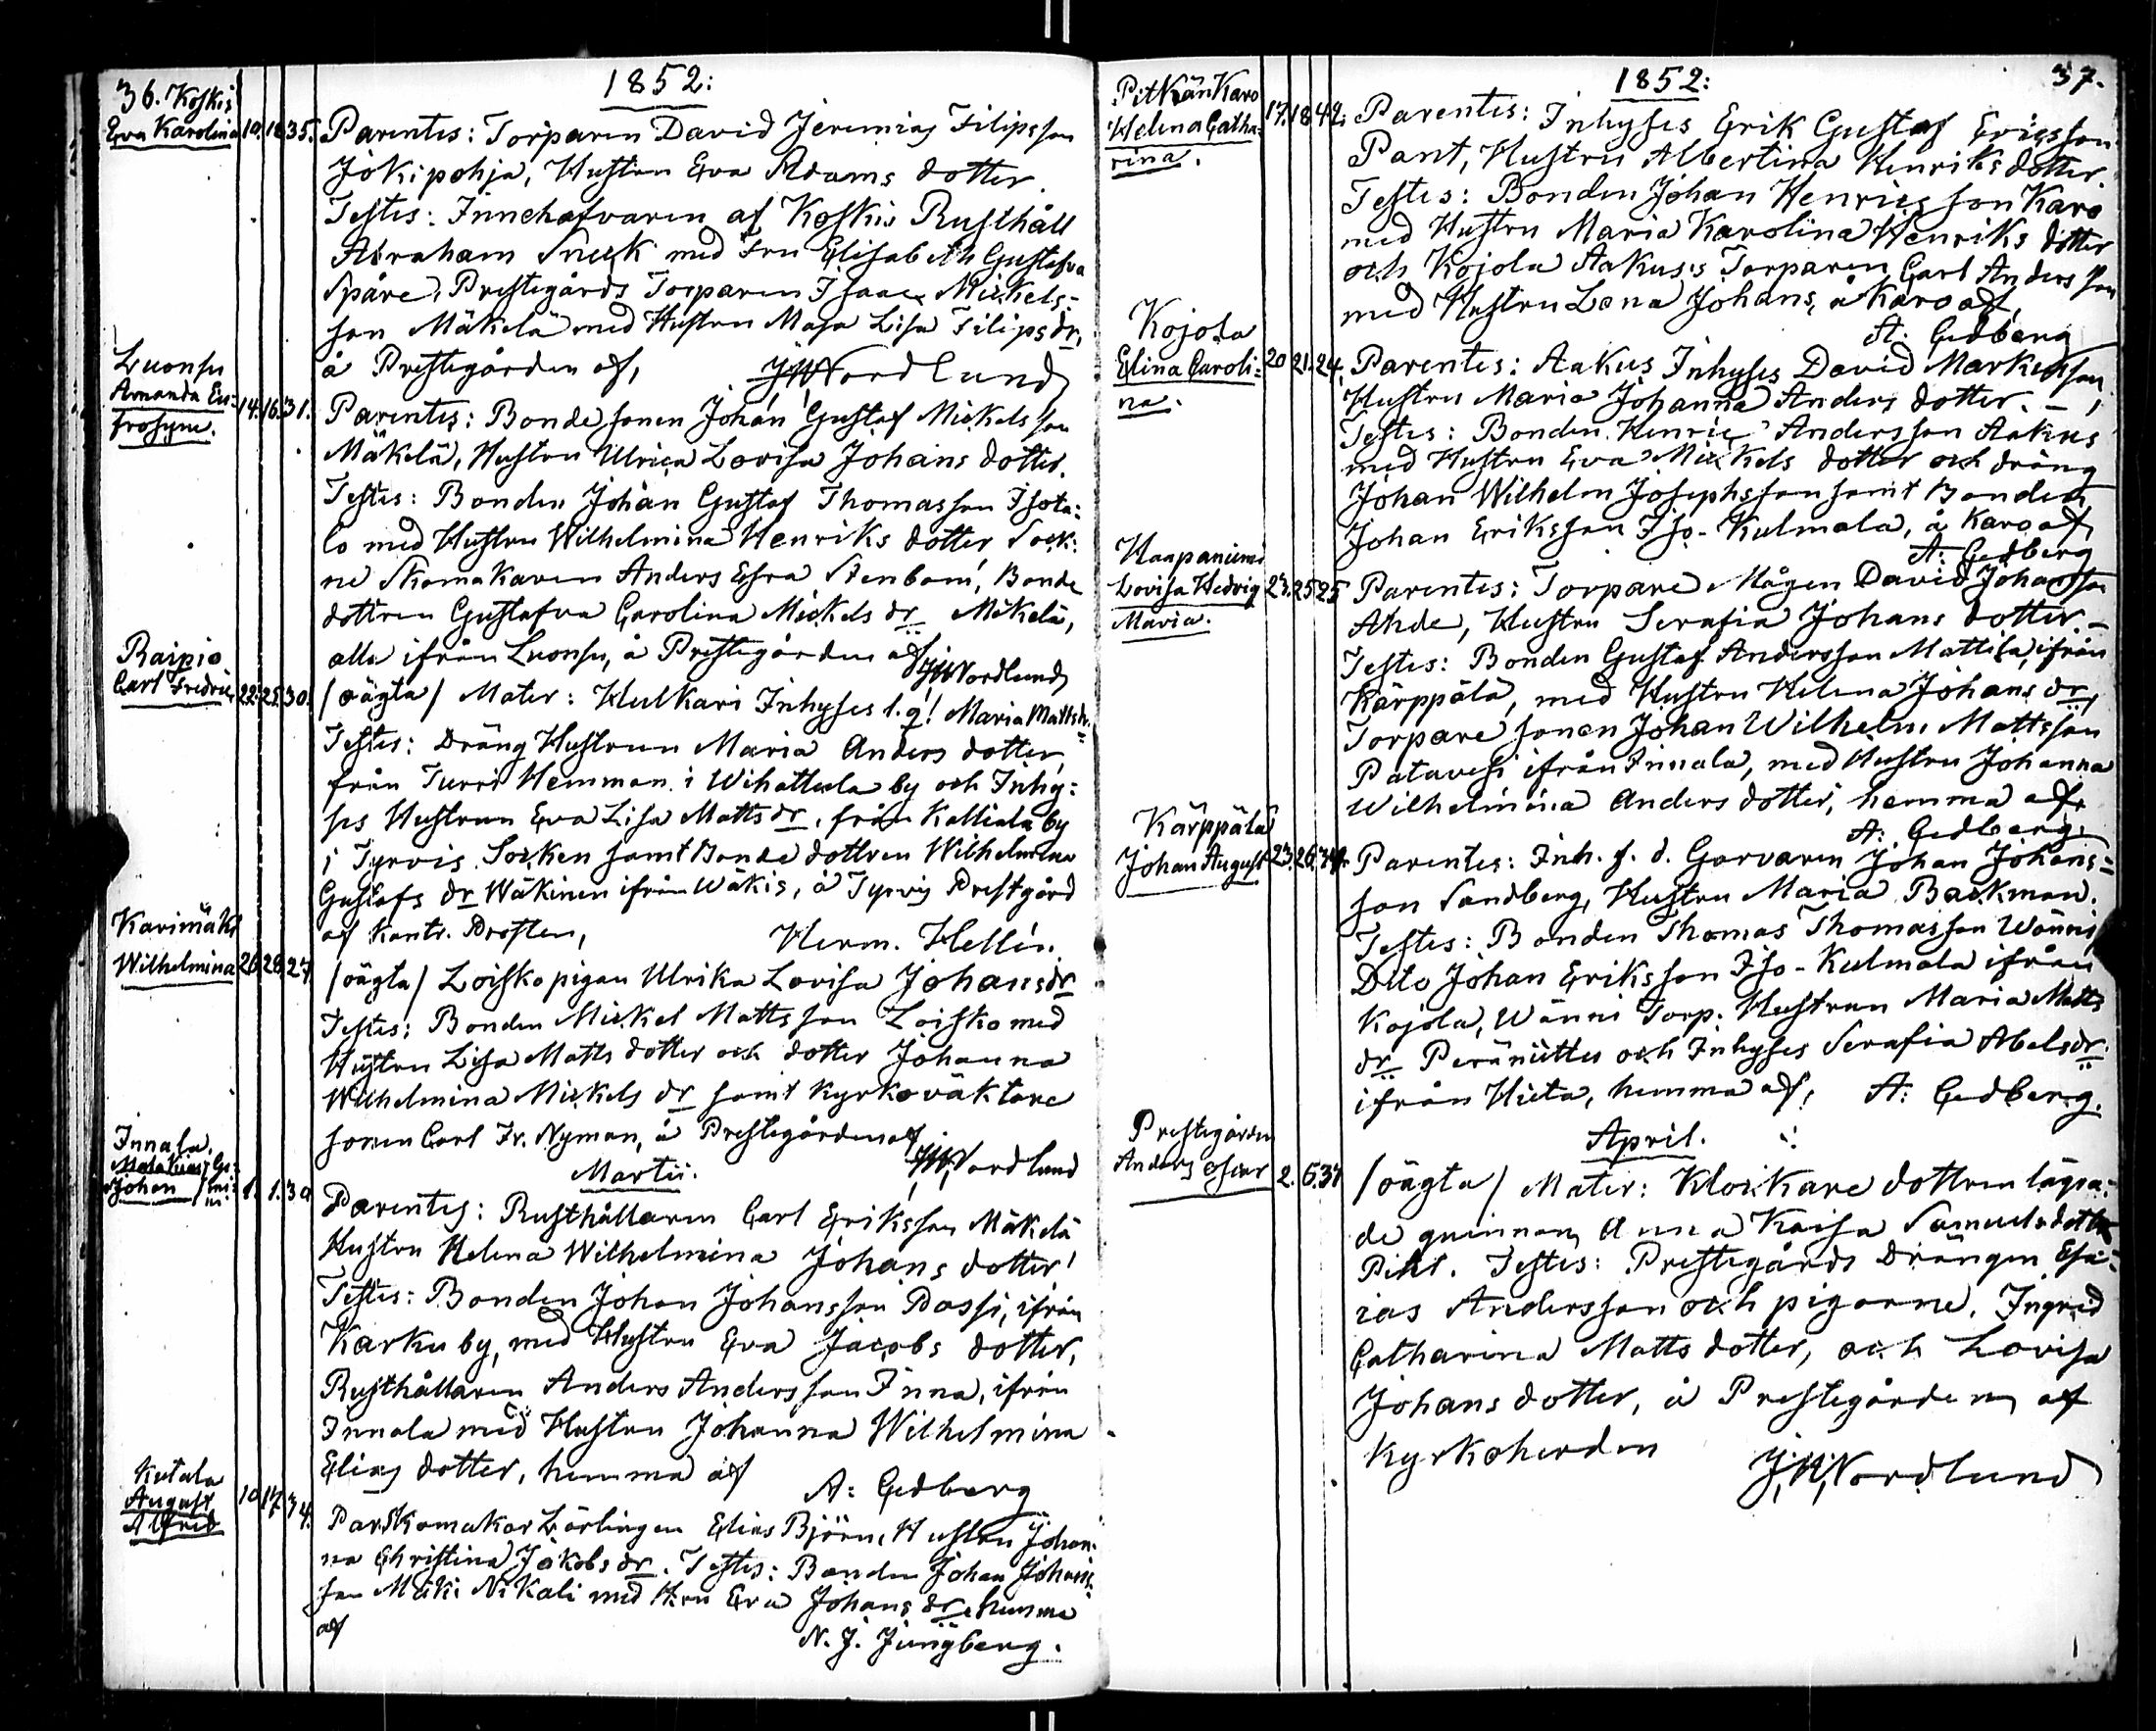 36. Koskis
1852:
Eva Karolina 10. 18. 35. Parentes: Torparen David Jeremias Filipsson
Jokipohja, Hustrun Eva Adams dotter.
Testes: Innehafvaren af Koskis Rusthåll
Abraham Sneck med Fru Elisabeth Gustafva
Spåre, Prestegårds Torparen Isaac Mickels-
son Mäkelä med Hustru Maja Lisa Filips dr,
å Prestegården af, JWNordlund
Luonsu
Amanda Eu-
frosyne. 14. 16. 31. Parentes: Bondesonen Johan Gustaf Mickelsson
Mäkelä, Hustrun Ulrica Lovisa Johans dotter.
Testes: Bonden Johan Gustaf Thomasson Isota-
lo med Hustru Wilhelmina Henriks dotter Sock-
ne Skomakaren Anders Esra Stenbom, Bonde
dottren Gustafva Carolina Mickels dr Mäkelä,
alla ifrån Luonsu, å Prestegården af JWNordlund
Raipio
Carl Fredric 22. 25. 30. /oägta/ Mater: Kulkari Inhyses l.q! Maria Mattsdr.
Testes: Dräng Hustrun Maria Anders dotter,
från Turri Hemman i Wihattula by och Inhy-
ses Hustrun Eva Lisa Matts dr, från Kalliala by
i Tyrvis Socken samt Bonde dottren Wilhelmina
Gustafs dr Wäkinen ifrån Wäkis, å Tyrvis Prestgård
af Kontr. Prosten, Herm. Hellén.
Karimäki
Wilhelmina 26. 28. 27. /oägta/ Loisko pigan Ulrika Lovisa Johansdr
Testes: Bonden Mickel Mattsson Loisko med
Hustru Lisa Matts dotter och dotter Johanna
Wilhelmina Mickels dr samt Kyrkoväktare
sonen Carl Fr. Nyman, å Prestegården af
JWNordlund
Martii.
Innala.
Malakias/Ge-
Johan /mi-
ni 1. 1. 39 Parentes: Rusthållaren Carl Eriksson Mäkelä
Hustru Helena Wilhelmina Johans dotter!
Testes: Bonden Johan Johansson Passi, ifrån
Karku by, med Hustru Eva Jacobs dotter,
Rusthållaren Anders Andersson Inna, ifrån
Innala med Hustru Johanna Wilhelmina
Elias dotter, hemma af
A: Gedberg
Kutala
August
Alfred 10. 17. 34. Par Skomakar Lärlingen Elias Björn, Hustru Johan-
na Christina Jakobs dr. Testes: Bonden Johan Johans-
son Mäki Nikali med Hru Eva Johans dr, hemma
af N. J. Jungberg.
1852: 37.
Pitkän Karo
Helena Catha-
rina. 17. 18. 42. Parentes: Inhyses Erik Gustaf Ericsson
Pant, Hustru Albertina Henriks dotter.
Testes: Bonden Johan Henricsson Karo
med Hustru Maria Karolina Henriks dotter
och Kojola Aakusis Torparen Carl Andersson
med Hustru Lena Johans, å Karo af,
A: Gedberg
Kojola
Elina Caroli-
na. 20 21. 24. Parentes: Aakus Inhyses David Markusson,
Hustru Maria Johanna Anders dotter. —
Testes: Bonden Henric Andersson Aakus
med Hustru Eva Mickels dotter och dräng
Johan Wilhelm Josephsson samt Bonden
Johan Eriksson Iso-Kulmala, å Karo af
A: Gedberg
Haapaniemi
Lovisa Hedvig
Maria. 23. 25 25 Parentes: Torpare Mågen David Johansson
Ahde, Hustru Serafia Johans dotter. —
Testes: Bonden Gustaf Andersson Mattila, ifrån
Kärppälä, med Hustru Helena Johans dr,
Torpare sonen Johan Wilhelm Mattsson
Patavesi ifrån Innala, med Hustru Johanna
Wilhelmina Anders dotter, hemma af,
A: Gedberg.
Kärppälä
Johan August 23. 26. 34. Parentes: Inh. f. d. Garvaren Johan Johans-
son Sandberg, Hustru Maria Backman.
Testes: Bonden Thomas Thomasson Wänni
Dito Johan Eriksson Iso-Kulmala ifrån
Kojola, Wänni Torp. Hustrun Maria Matts
dr Peräniittu och Inhyses Serafia Abelsdr
ifrån Hiita, hemma af, A: Gedberg.
April.
Prestegården
Anders Oscar 2. 6. 37 /oägta/ Mater: Klockare dottren lägra-
de quinnan Anna Kaisa Samuelsdotter
Pihl. Testes: Prestegårds Drängen Esa-
ias Andersson och pigorne, Ingrid
Catharina Matts dotter, och Lovisa
Johans dotter, å Prestegården af
Kyrkoherden JWNordlund